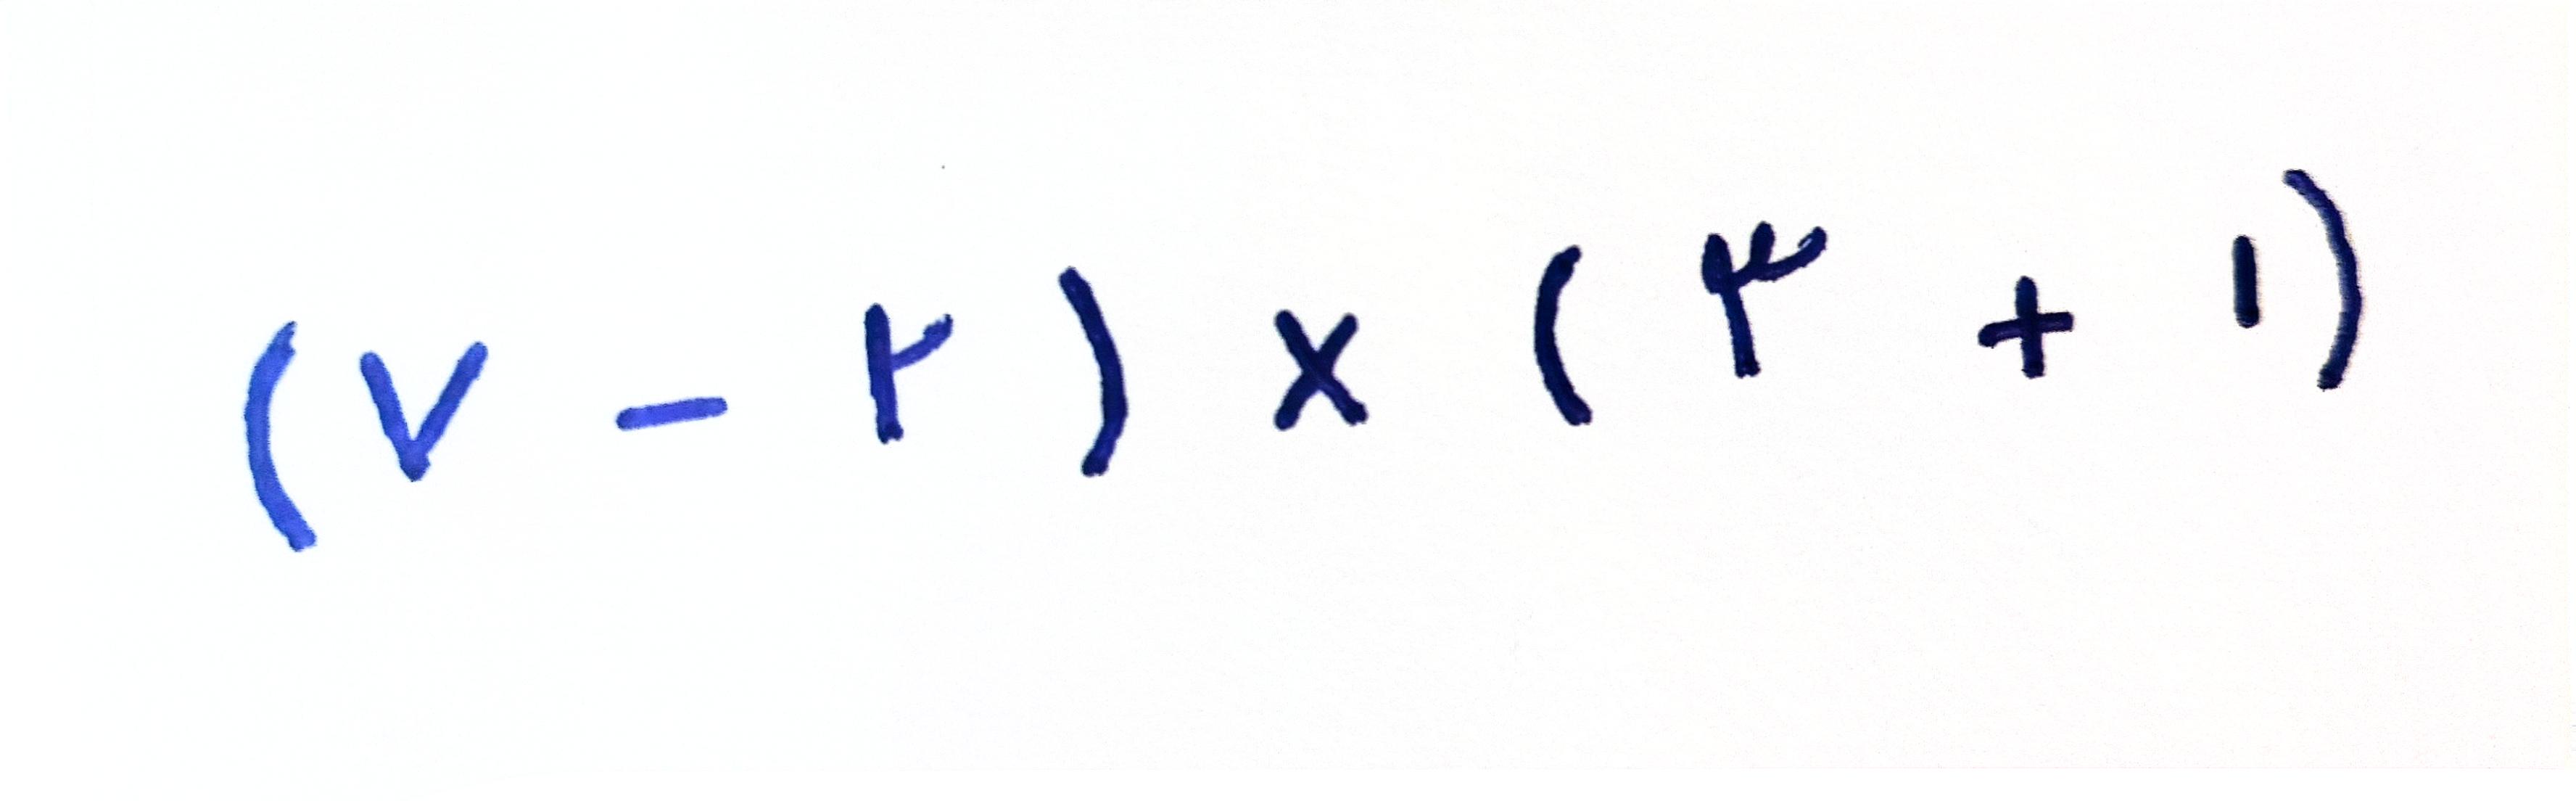 (۷ - ۲) × (۳ + ۱)